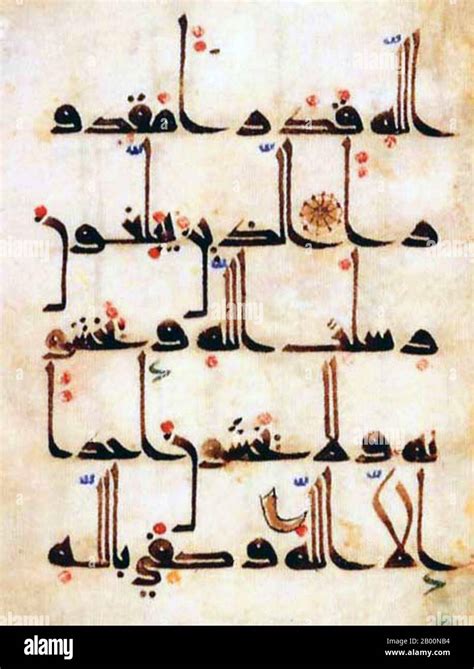 الله قدرا مقدو
را الذين يبلغون
رسلت الله ويخشو
نه ولا يخشون احدا
الا الله وكفى بالله
alamy
Image ID: 2B00NB4
www.alamy.com